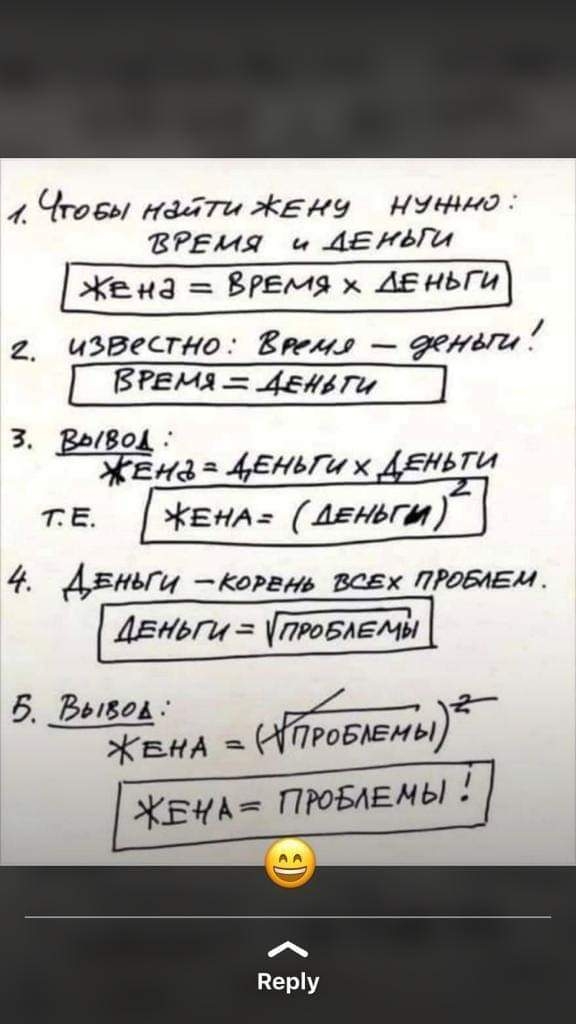 1. Чтобы найти жену нужно:
время и деньги
жена = время x деньги
2. известно: Время – деньги!
время = деньги
3. Вывод:
жена = деньги x деньги
т.е. жена = (деньги)²
4. Деньги – корень всех проблем.
деньги = √проблемы
5. Вывод:
жена = (√проблемы)²
жена = проблемы!
😄
Reply